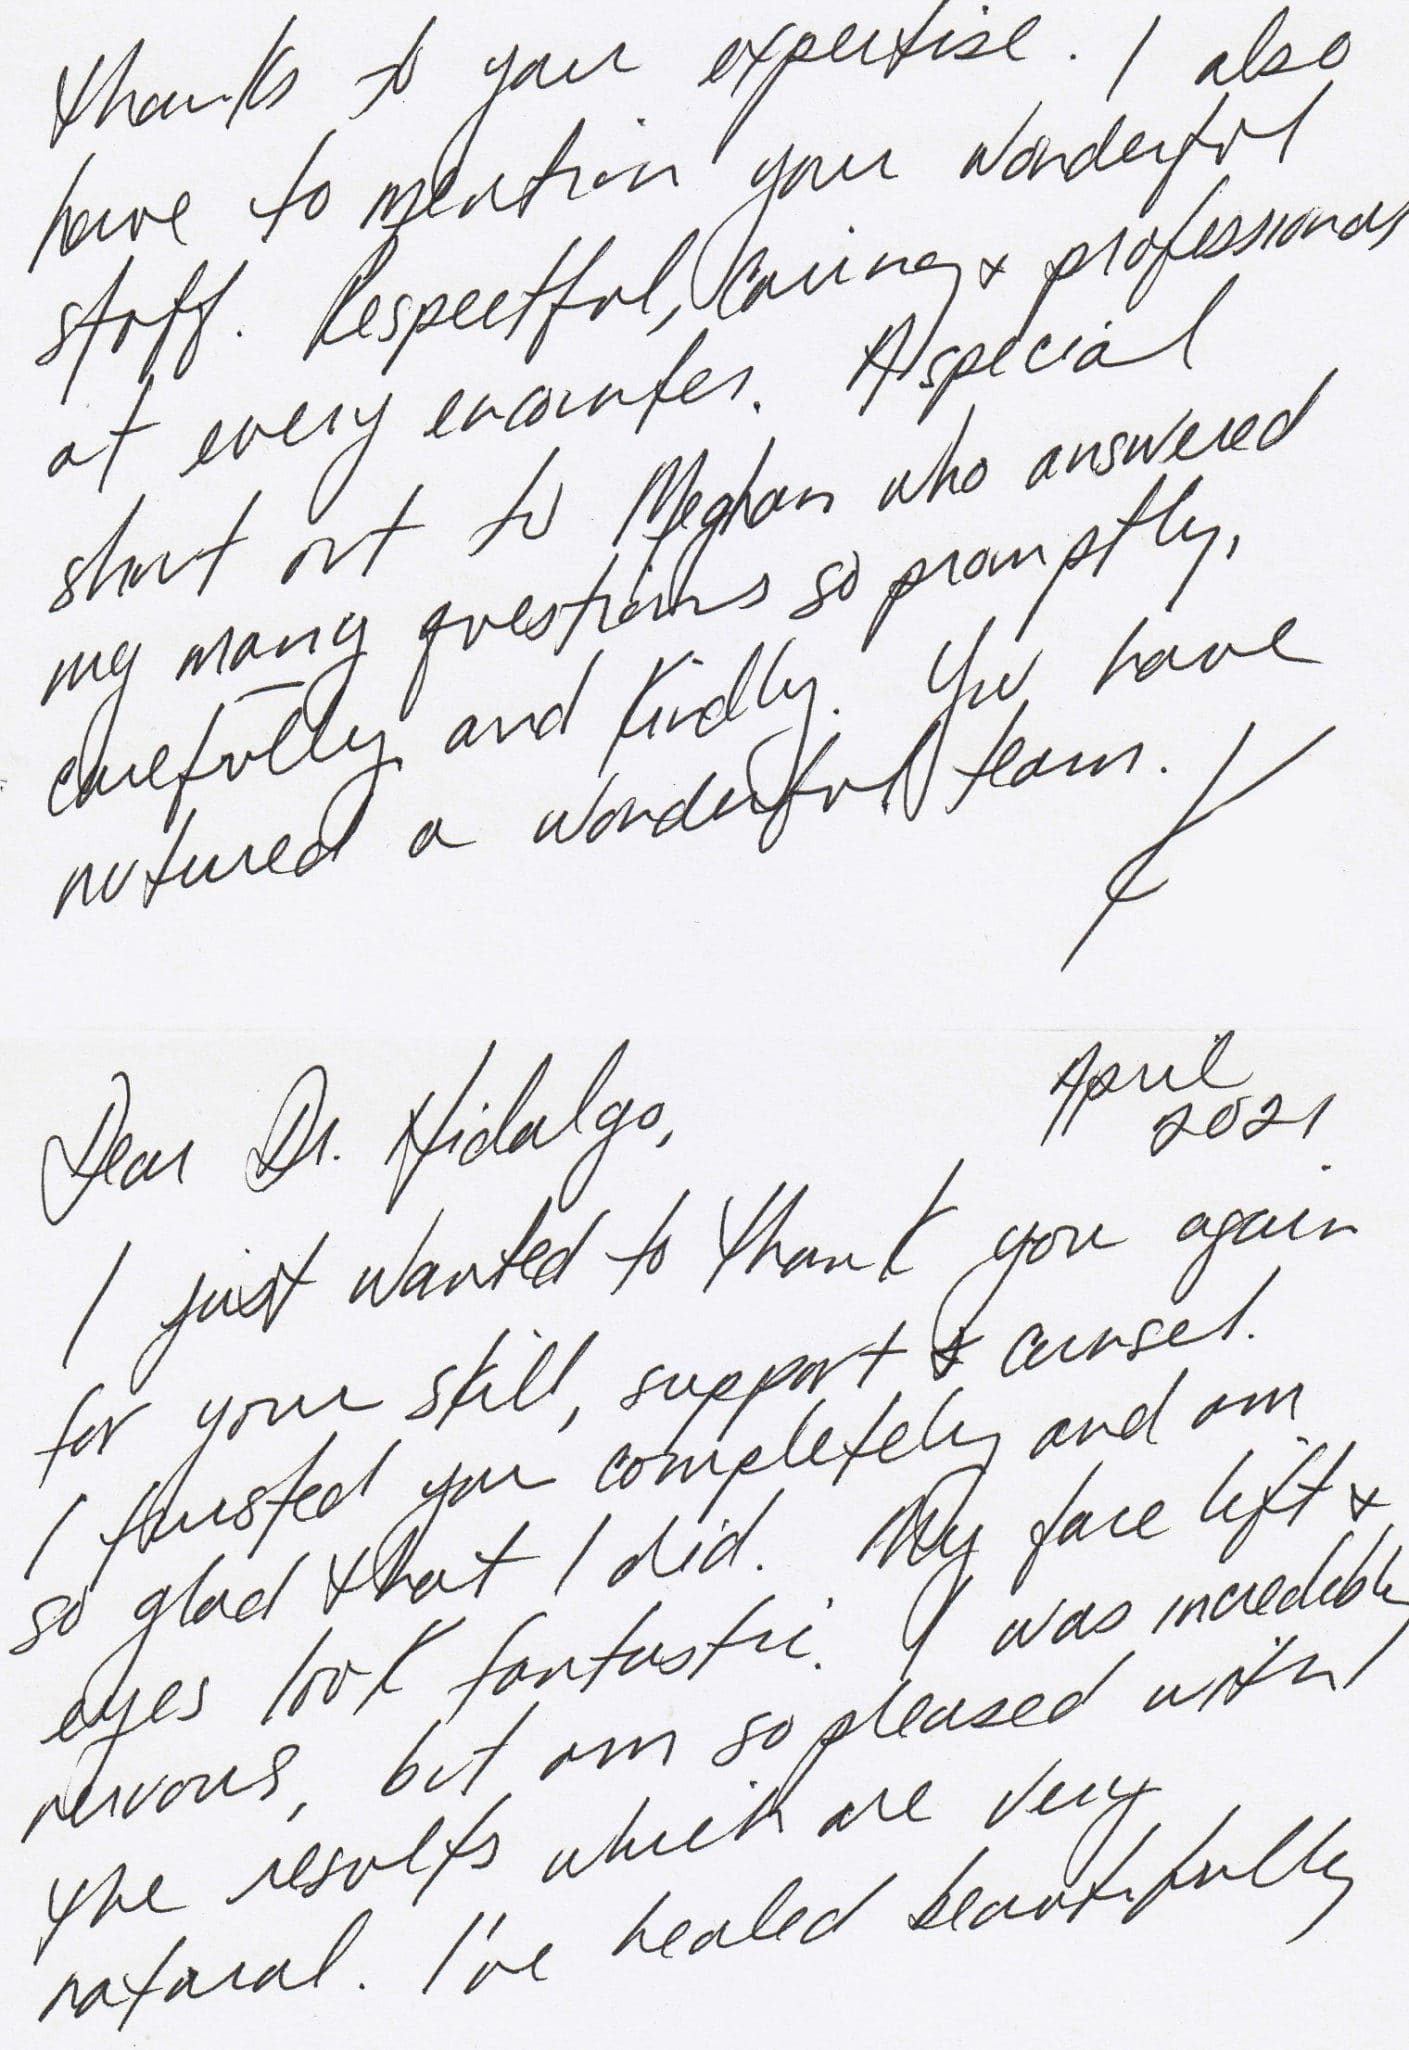 thanks to your expertise. I also
have to mention your wonderful
staff. Respectful, caring & professional
at every encounter. A special
shout out to Meghan who answered
my many questions so promptly,
carefully and kindly. You have
nutured a wonderful team.
April
2021
Dear Dr. Hidalgo,
I just wanted to thank you again
for your skill, support & counsel.
I trusted you completely and am
so glad that I did. My face lift &
eyes look fantastic. I was incredibly
nervous, but am so pleased with
the results which are very
natural. I've healed beautifully